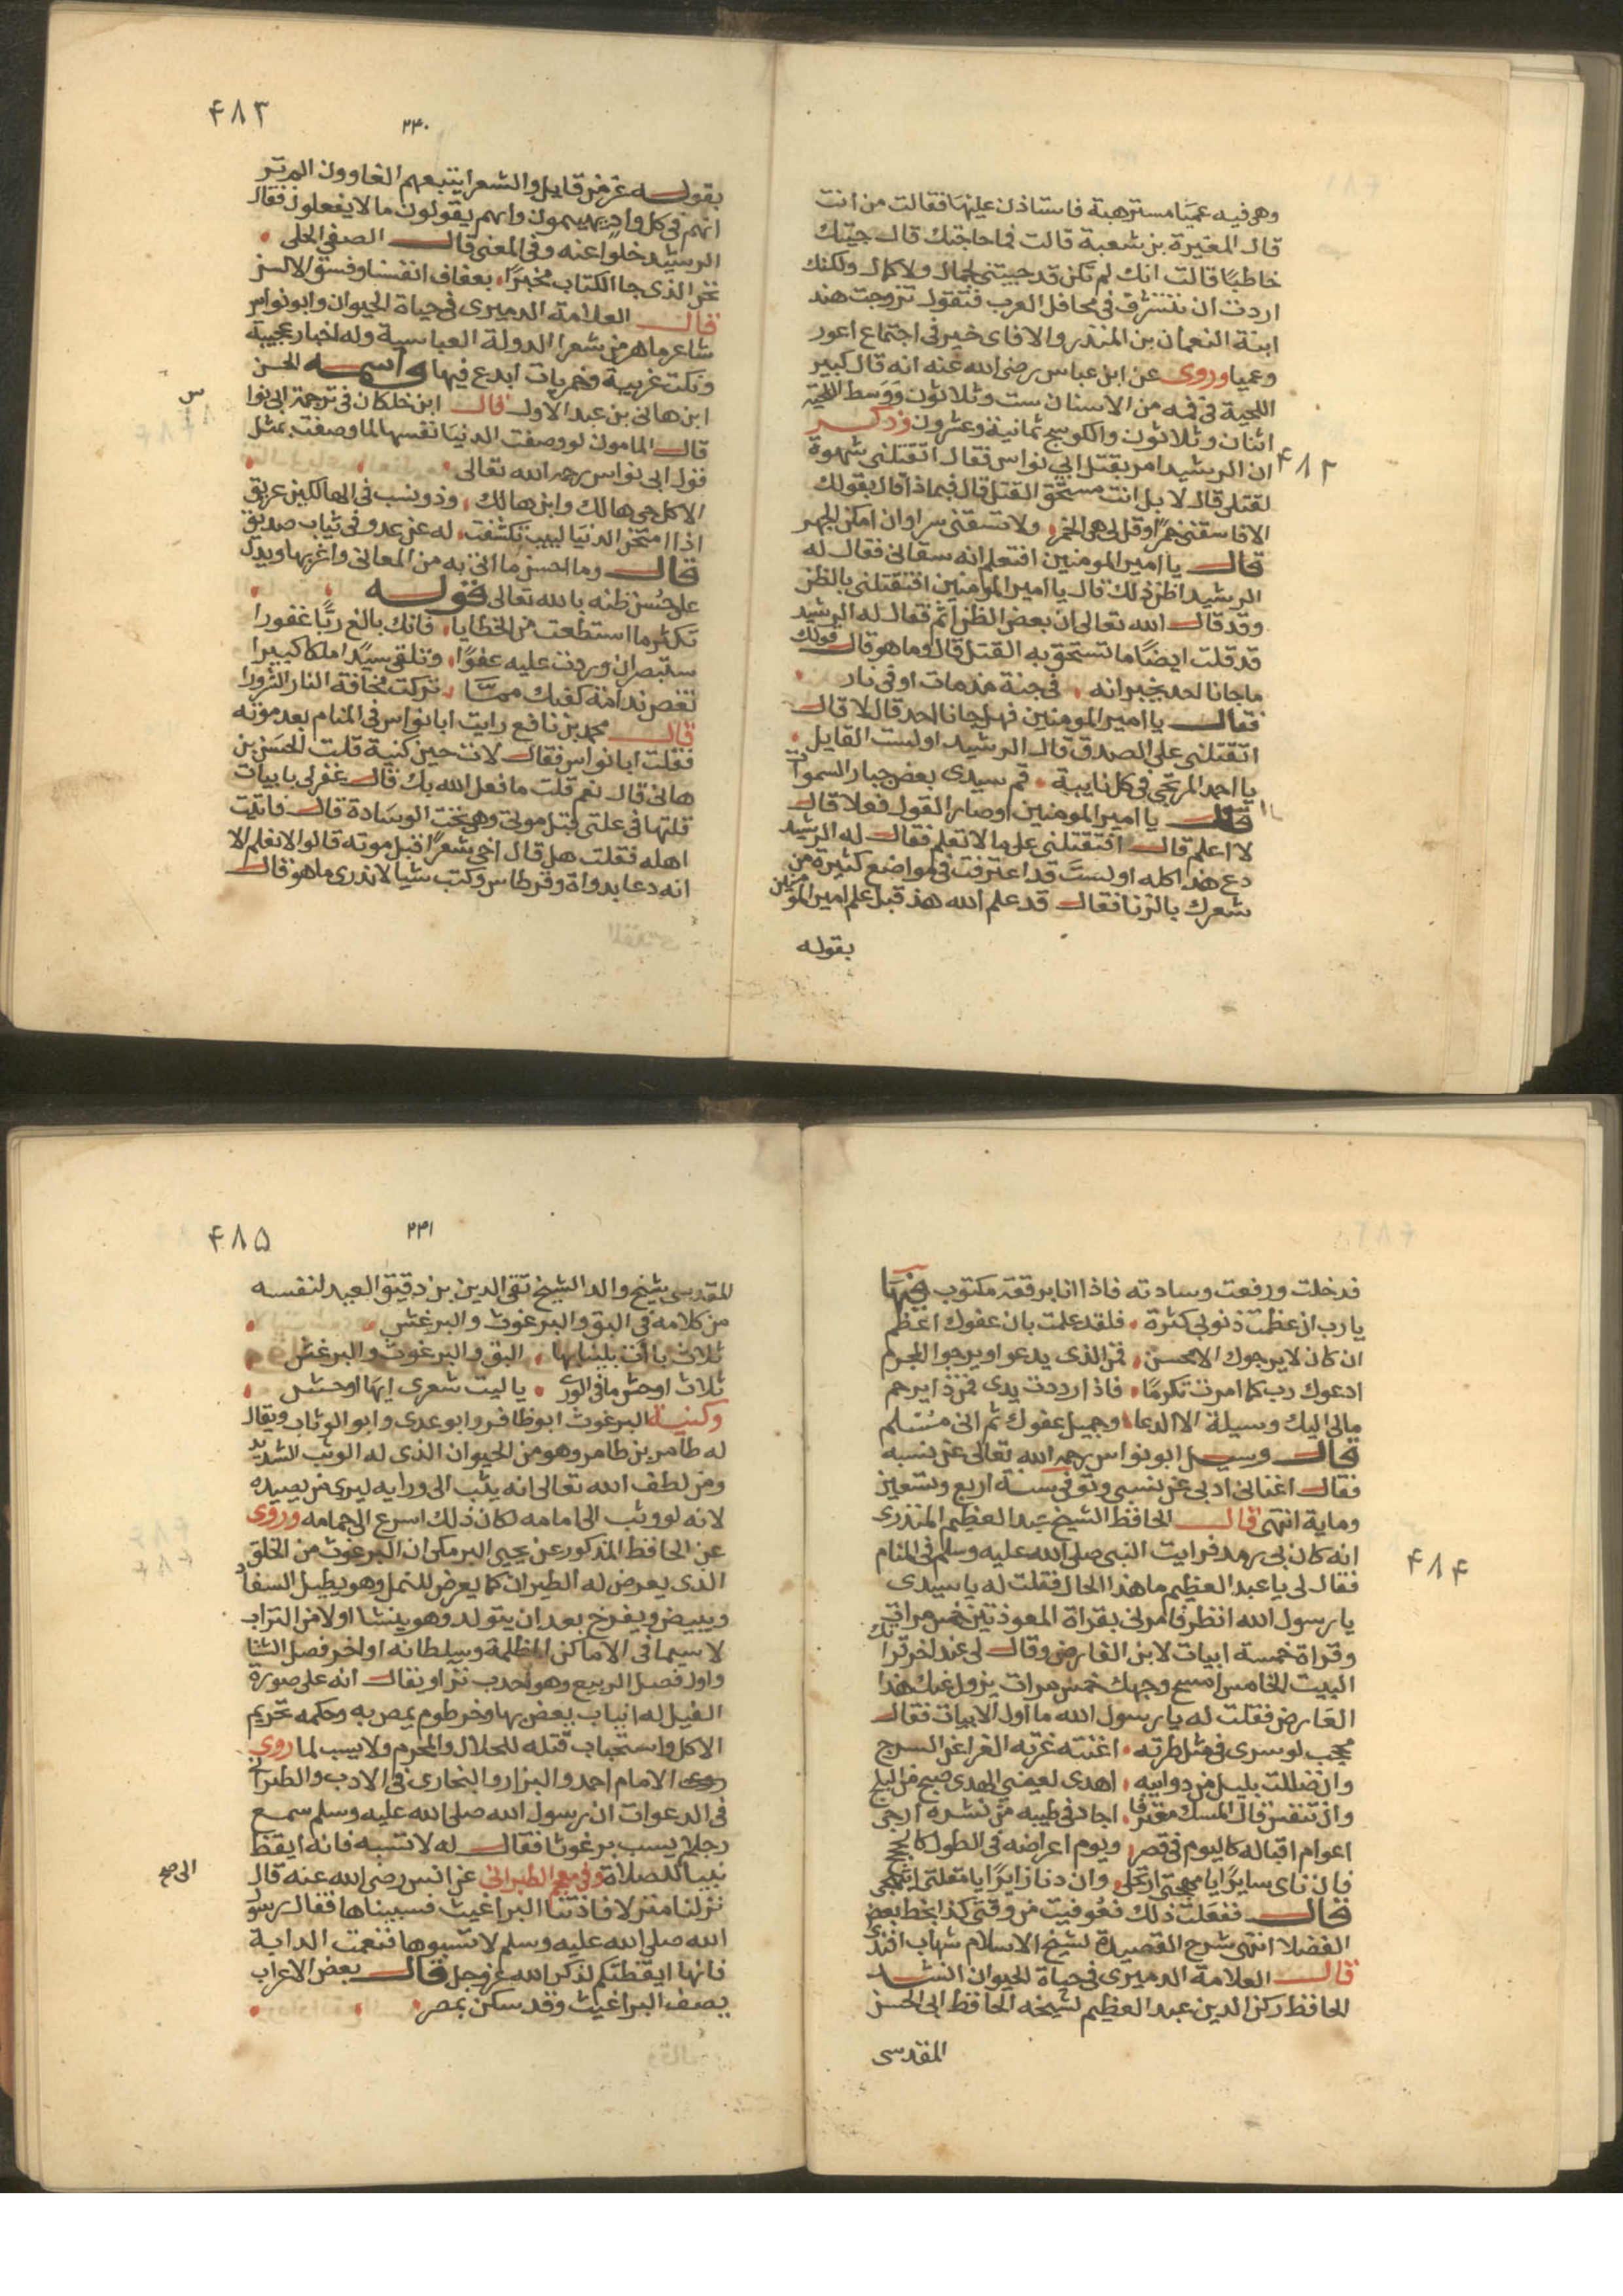 وهى فيه عميا مسترهبة فاستاذن عليها فقالت من انت
قال المغيرة بن شعبة قالت فما حاجتك قال جيتك
خاطبًا قالت انك لم تكن قد جيتنى لجمال ولا كمال ولكنك
اردت ان تتشرف فى محافل العرب فتقول تزوجت هند
ابنة النعمان بن المنذر والا فاى خير فى اجتماع اعور
وعميا وروى عن ابن عباس رضى الله عنه انه قال كبير
اللحية فى فمه من الاسنان ست وثلاثون ووسط اللحية
اثنان وثلاثون والكوسج ثمانية وعشرون وذكر
۴۸۲
ان الرشيد امر بقتل ابى نواس فقال اتقتلنى شهوة
لقتلى قال لا بل انت مستحق القتل قال فبماذا قال بقولك
الا فاسقنى خمرًا وقل لى هى الخمر ولا تسقنى سرا وان امكن الجهر
قال يا امير المومنين افتعلم انه سقانى فقال له
الرشيد اظن ذلك قال يا امير المومنين افتقتلنى بالظن
وقد قال الله تعالى ان بعض الظن اثم فقال له الرشيد
قد قلت ايضًا ما تستحق به القتل قال وما هو قال قولك
ما جانا احد يخبر انه فى جنة مذ مات او فى نار
فقال يا امير المومنين فهل جانا احد قال لا قال
اتقتلنى على الصدق قال الرشيد اولست القايل
يا احمد المرتجى فى كل نايبة قم سيدى نعص جبار السموات
قال يا امير المومنين اوصار القول فعلا قال
لا اعلم قال افتقتلنى على ما لا تعلم فقال له الرشيد
دع هذا كله اولست قد اعترفت فى مواضع كثيرة من
شعرك بالزنا فقال قد علم الله هذ قبل علم امير المومنين
بقوله
۴۸۳
۲۴۰
بقوله عز من قايل والشعرا يتبعهم الغاوون الم تر
انهم فى كل واد يهيمون وانهم يقولون ما لا يفعلون فقال
الرشيد خلوا عنه وفى المعنى قال الصفى الحلى
نحن الذى جا الكتاب مخبرًا بعفاف انفسنا وفسق الالسن
قال العلامة الدميرى فى حياة الحيوان وابو نواس
شاعر ماهر من شعرا الدولة العباسية وله اخبار عجيبة
ونكت غريبة وخمريات ابدع فيها واسمه الحسن
ابن هانى بن عبد الاول قال ابن خلكان فى ترجمة ابى نوا
س
قال المامون لو وصفت الدنيا نفسها لما وصفت بمثل
قول ابى نواس رحمه الله تعالى
الا كل حى هالك وابن هالك وذو نسب فى الهالكين عريق
اذا امتحن الدنيا لبيب تكشفت له عن عدو فى ثياب صديق
قال وما احسن ما اتى به من المعانى واغربها ويدل
على حسن ظنه بالله تعالى قوله
تكثر ما استطعت من الخطايا فانك بالغ ربًّا غفورا
ستبصر ان وردت عليه عفوًا وتلقى سيدًا ملكا كبيرا
تعض ندامة كفيك مما تركت مخافة النار الشرورا
قال محمد بن نافع رايت ابا نواس فى المنام بعد موته
فقلت ابا نواس فقال لات حين كنية قلت الحسن بن
هانى قال نعم قلت ما فعل الله بك قال غفر لى بابيات
قلتها فى علتى قبل موتى وهى تحت الوسادة قال فاتيت
اهله فقلت هل قال اخى شعرًا قبل موته قالوا لا نعلم الا
انه دعا بدواة وقرطاس وكتب شيا لا ندرى ما هو قال
فدخلت ورفعت وسادته فاذا انا برقعة مكتوب فيها
يا رب ان عظمت ذنوبى كثرة فلقد علمت بان عفوك اعظم
ان كان لا يرجوك الا محسن فمن الذى يدعو ويرجوا المجرم
ادعوك رب كما امرت تكرمًا فاذا رددت يدى فمن ذا يرحم
مالى اليك وسيلة الا الدعا وجميل عفوك ثم انى مسلم
قال وسيل ابو نواس رحمه الله تعالى عن نسبه
فقال اغنانى ادبى عن نسبى وتوفى سنة اربع وتسعين
وماية انتهى قال الحافظ الشيخ عبد العظيم المنذرى
انه كان بى رمد فرايت النبى صلى الله عليه وسلم فى المنام
۴۸۴
فقال لى يا عبد العظيم ما هذا الحال فقلت له يا سيدى
يا رسول الله انظر فامرنى بقراة المعوذتين خمس مرات
وقراة خمسة ابيات لابن الفارض وقال لى عند اخر قراتك
البيت الخامس امسح وجهك خمس مرات يزول عنك هذا
العارض فقلت له يا رسول الله ما اول الابيات فقال
محجب لو سرى فى مثل طرته اغنته غرته الغرا عن السرج
وان ضللت بليل من دوايبه اهدى لعينى الهدى صبح من البلج
وان تنفس قال المسك معترفا اجاد فى طيبه من نشره ارجى
اعوام اقباله كاليوم فى قصر ويوم اعراضه فى الطول كالحجج
فان ناى سايرًا يا مهجتى ارتحلى وان دنا زايرًا يا مقلتى ابتهجى
قال ففعلت ذلك فعوفيت من وقتى كذا بخط بعض
الفضلا انتهى شرح القصيدة لشيخ الاسلام شهاب افندى
قال العلامة الدميرى فى حياة الحيوان انشد
الحافظ ركن الدين عبد العظيم لشيخه الحافظ ابى الحسن
المقدسى
۴۸۵
۲۴۱
المقدسى شيخ والد الشيخ تقى الدين بن دقيق العيد لنفسه
من كلامه فى البق والبرغوث والبرغش
ثلاث باات بلينا بها البق والبرغوث والبرغش
ثلاث اوحش ما فى الورى يا ليت شعرى ايها اوحش
وكنية البرغوث ابو ظافر وابو عدى وابو الوثاب ويقال
له طامر بن طامر وهو من الحيوان الذى له الوثب الشديد
ومن لطف الله تعالى انه يثب الى ورايه ليرى من يصيده
لانه لو وثب الى امامه لكان ذلك اسرع الى حمامه وروى
عن الحافظ المذكور عن يحيى البرمكى ان البرغوث من الخلق
الذى يعرض له الطيران كما يعرض للنمل وهو يطيل السفاد
ويبيض ويفرخ بعد ان يتولد وهو ينشا اولا من التراب
لا سيما فى الاماكن المظلمة وسلطانه اواخر فصل الشتا
واول فصل الربيع وهو احدب نزا ويقال انه على صورة
الفيل له انياب يعض بها وخرطوم يمص به وحكمه تحريم
الاكل واستحباب قتله للحلال والمحرم ولا يسب لما روى
الامام احمد والبزار والبخارى فى الادب والطبرانى
فى الدعوات ان رسول الله صلى الله عليه وسلم سمع
رجلا يسب برغوثا فقال له لا تسبه فانه ايقظ
نبيا للصلاة وفى معجم الطبرانى عن انس رضى الله عنه قال
نزلنا منزلا فاذتنا البراغيث فسببناها فقال رسول
الله صلى الله عليه وسلم لا تسبوها فنعمت الدابة
فانها ايقظتكم لذكر الله عز وجل قال بعض الاعراب
يصف البراغيث وقد سكن بمصر